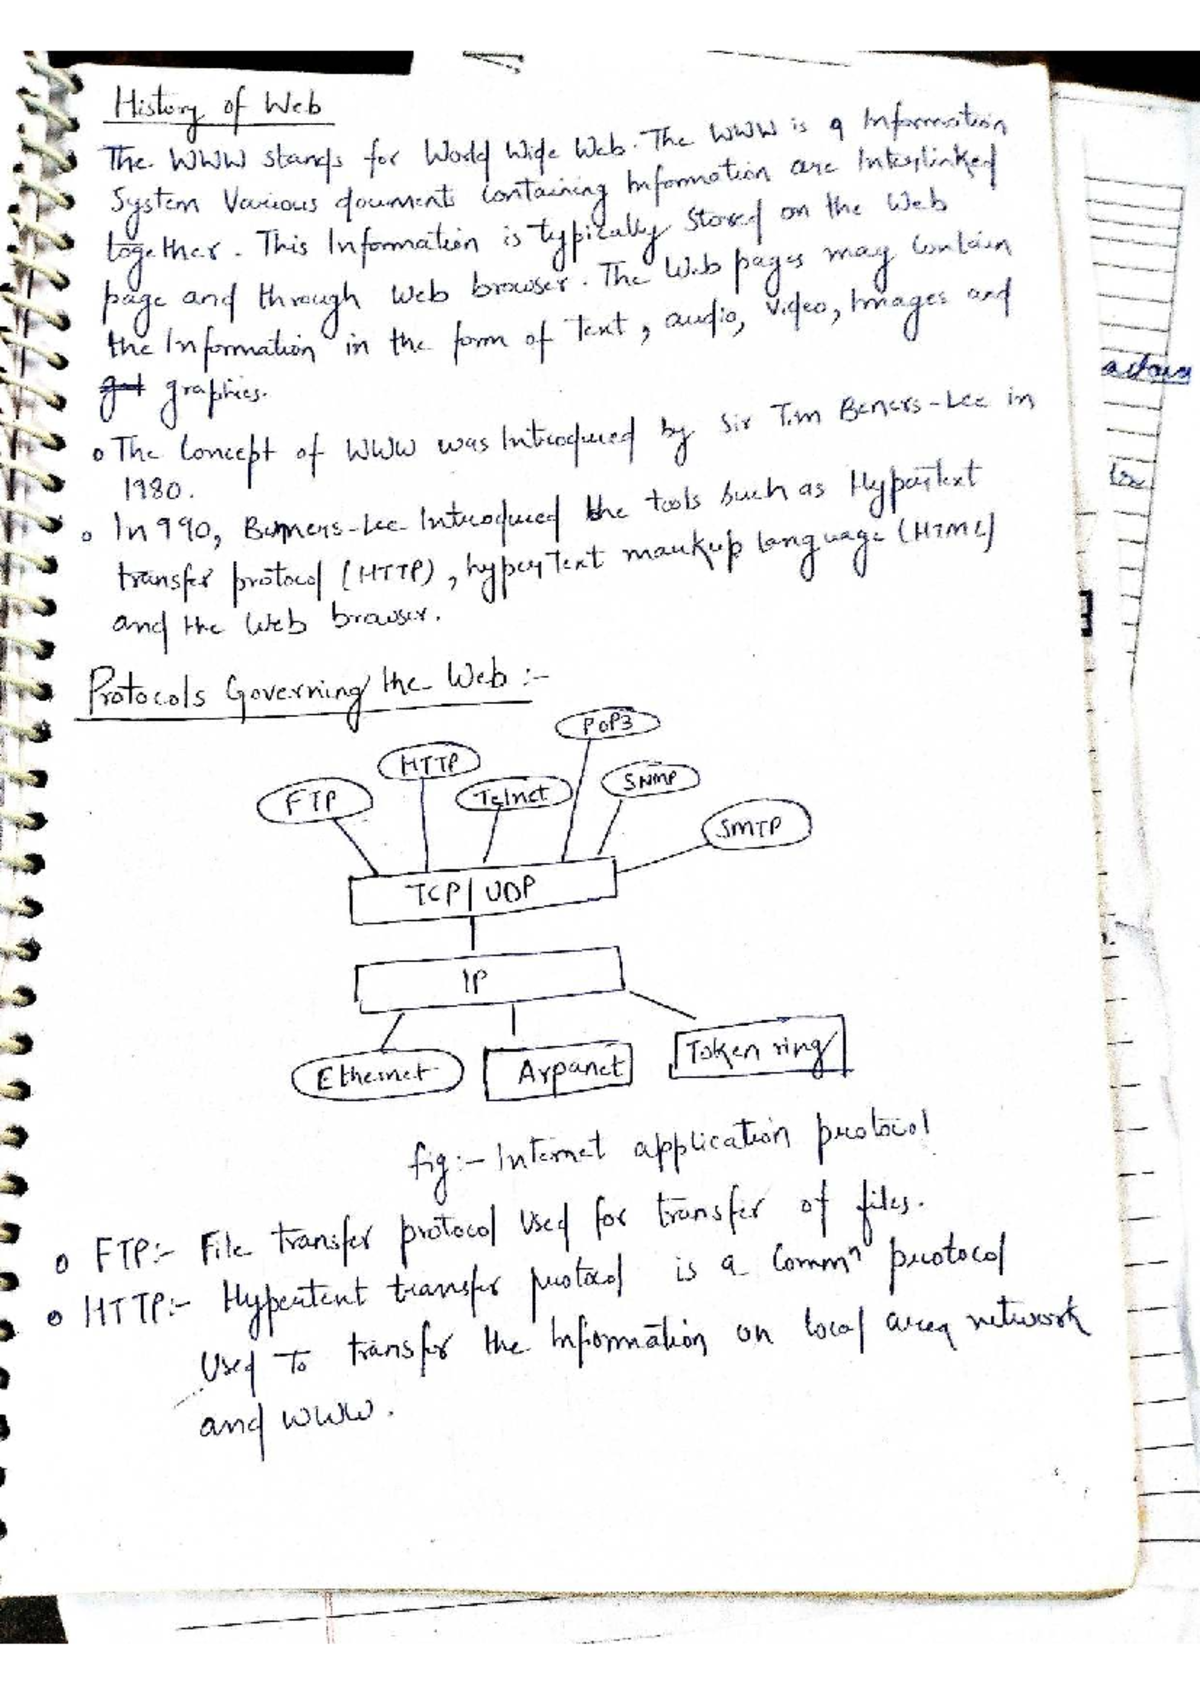 History of Web
The WWW stands for World Wide Web. The WWW is a Information
System Various douments Containing Information are Interlinked
together. This Information is typically Stored on the Web
page and through Web browser. The Web pages may Contain
the Information in the form of Text, audio, Video, Images and
graphics.
The Concept of WWW was Introduced by Sir Tim Beners-Lee in
1980.
In 990, Berners-Lee Introduced the tools Such as Hypertext
transfer protocol (HTTP), hyper Text markup language (HTML)
and the Web browser.
Protocols Governing the Web :-
POP3
HTTP
FTP
Telnet
SNMP
SMTP
TCP | UDP
IP
Ethernet
Arpanet
Token ring
fig:- Internet application protocol
FTP:- File transfer protocol Used for transfer of files.
HTTP:- Hypertent transfer protocol is a Commn protocol
Used To transfer the Information on local area network
and WWW.